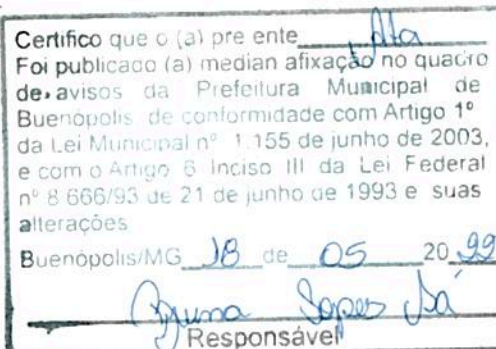 Certifico que o (a) pre ente Ata
Foi publicado (a) median afixação no quadro
de avisos da Prefeitura Municipal de
Buenópolis de conformidade com Artigo 1º
da Lei Municipal nº 1.155 de junho de 2003,
e com o Artigo 6 Inciso III da Lei Federal
nº 8.666/93 de 21 de junho de 1993 e suas
alterações
Buenópolis/MG 18 de 05 20 22
Bruna Lopes Sá
Responsável